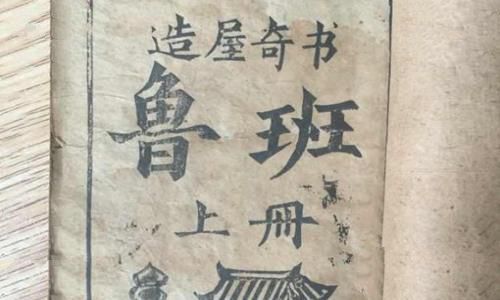 造屋奇书
鲁班
上册